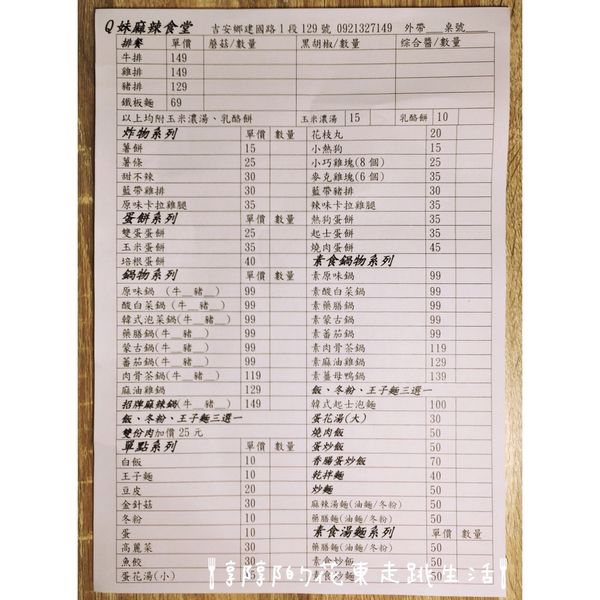 Q妹麻辣食堂 吉安鄉建國路1段129號 0921327149 外帶___桌號___
排餐 單價 蘑菇/數量 黑胡椒/數量 綜合醬/數量
牛排 149
雞排 149
豬排 129
鐵板麵 69
以上均附玉米濃湯、乳酪餅 玉米濃湯 15 乳酪餅 10
炸物系列 單價 數量
薯餅 15
薯條 25
甜不辣 30
藍帶雞排 30
原味卡拉雞腿 35
蛋餅系列 單價 數量
雙蛋蛋餅 25
玉米蛋餅 35
培根蛋餅 40
鍋物系列 單價 數量
原味鍋 (牛__豬__) 99
酸白菜鍋 (牛__豬__) 99
韓式泡菜鍋(牛__豬__) 99
藥膳鍋(牛__豬__) 99
蒙古鍋(牛__豬__) 99
蕃茄鍋(牛__豬__) 99
肉骨茶鍋(牛__豬__) 119
麻油雞鍋 129
招牌麻辣鍋(牛__豬__) 149
飯、冬粉、王子麵三選一
雙份肉加價 25 元
單點系列 單價 數量
白飯 10
王子麵 10
豆皮 20
金針菇 30
冬粉 10
蛋 10
高麗菜 30
魚餃 30
蛋花湯(小)
花枝丸 20
小熱狗 15
小巧雞塊(8 個) 25
麥克雞塊(6 個) 35
藍帶豬排 30
辣味卡拉雞腿 35
熱狗蛋餅 35
起士蛋餅 35
燒肉蛋餅 45
素食鍋物系列
素原味鍋 99
素酸白菜鍋 99
素藥膳鍋 99
素蒙古鍋 99
素蕃茄鍋 99
素肉骨茶鍋 119
素麻油雞鍋 129
素薑母鴨鍋 139
飯、冬粉、王子麵三選一
韓式起士泡麵 100
蛋花湯(大) 30
燒肉飯 50
蛋炒飯 50
香腸蛋炒飯 70
乾拌麵 40
炒麵 50
麻辣湯麵(油麵/冬粉) 50
藥膳麵(油麵/冬粉) 50
素食湯麵系列 單價 數量
藥膳麵(油麵/冬粉) 50
素食炒飯 50
素食炒麵 50
享享的花東走跳生活